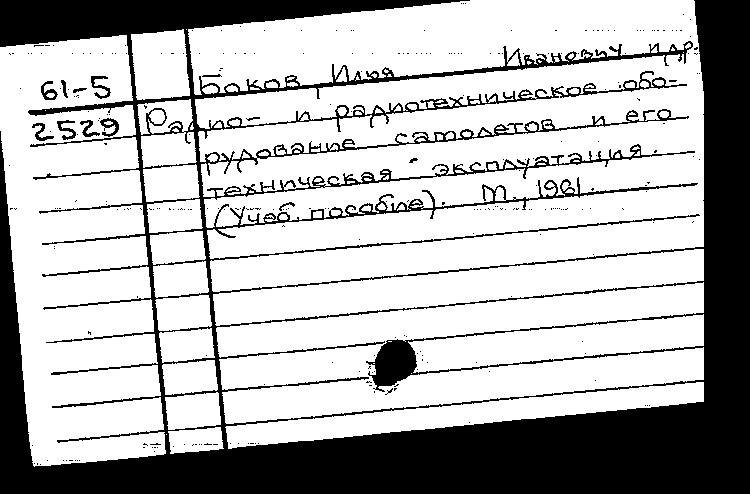 61-5 Боков, Илья Иванович и др.
2529 Радио- и радиотехническое обо-
рудование самолетов и его
техническая эксплуатация.
(Учеб. пособие). М., 1961.